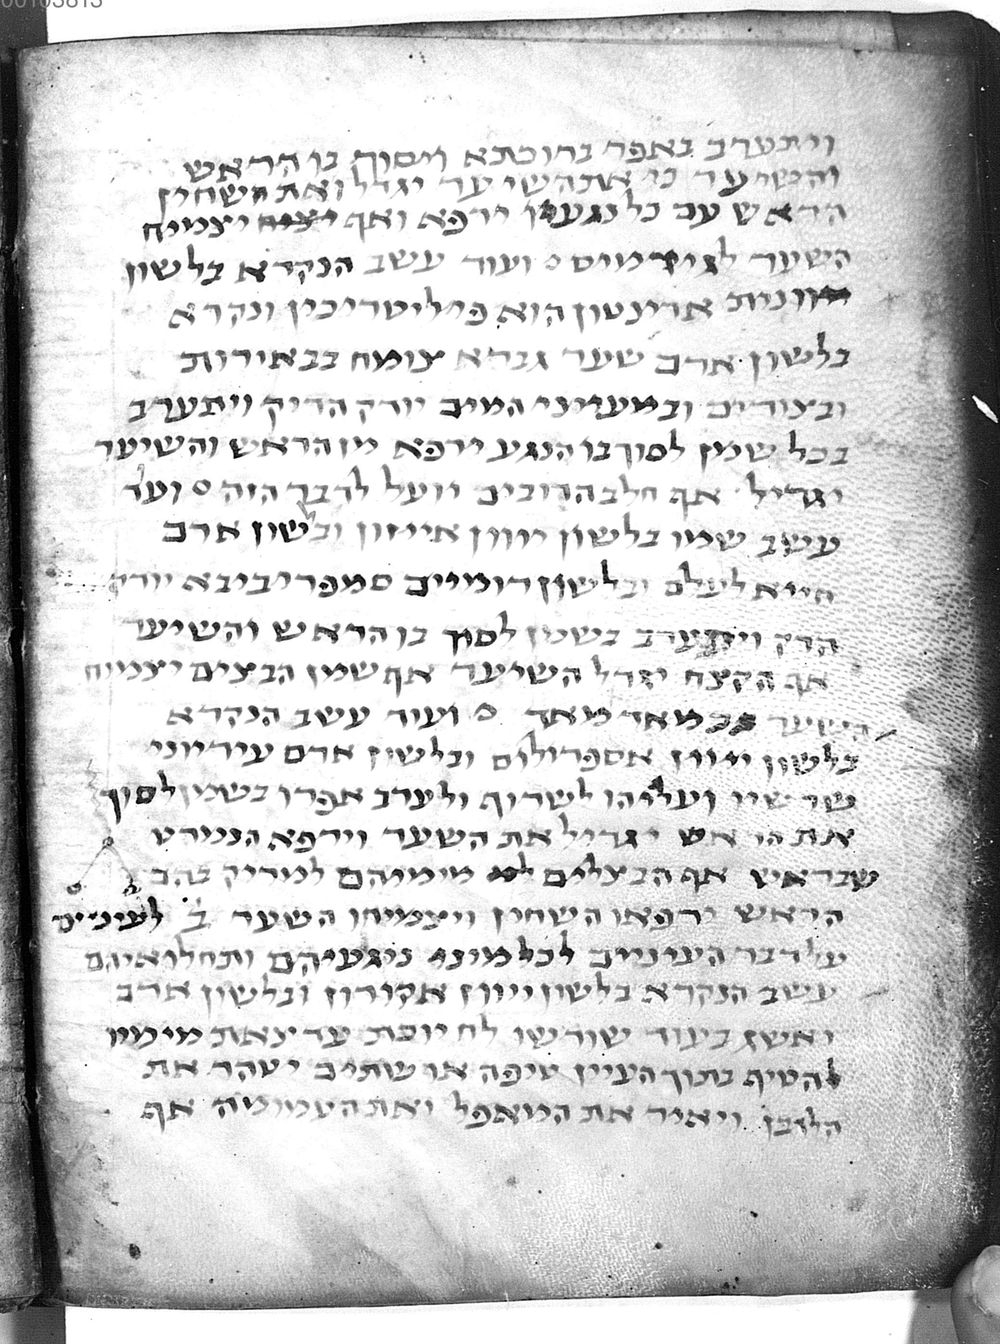 00103813
ויתערב באפר ברוכתא ויסוך בו הראש
והשיער כי את השיער יגדל ואת השחין
הראש עם כל נגעיו ירפא ואף יצמיח
השער לגירמיס ועוד עשב הנקרא בלשון
יוונית ארינטון הוא פוליטריכין ונקרא
בלשון ארם שער גברא צומח בבאירות
ובצורים ובמעייני המים יורק הדיק ויתערב
בכל שמן לסוך בו הנגע ירפא מן הראש והשיער
יגדיל אף חלב הדובים יועל לדבר הזה ועוד
עשב שמו בלשון יוון אייזון ובלשון ארם
חייא לעלם ובלשון רומיים סמפריביבא יורק
הדק ויתערב בשמן לסוך בו הראש והשיער
אף הקצח יגדל השיער אף שמן הבצים יצמיח
השער במאד מאד ועוד עשב הנקרא
בלשון יוון אספרולוס ובלשון ארם עיריוני
שרשיו ועליהו לשרוף ולערב אפרו בשמן לסוך
את הראש יגדיל את השער וירפא הנמרט
שבראש אף הבצלים מימיהם למריק בהם
הראש ירפאו השחין ויצמיחו השער ב לעינים
על דבר העיניים לכל מיני ניגעיהם ותחלואיהם
עשב הנקרא בלשון יוון אקורון ובלשון ארם
ואשג בעוד שורשו לח יוכת עד צאת מימיו
להטיף בתוך העיין טיפה או שתים יטהר את
הלובן ויאיר את המאפל ואת העמומה אף